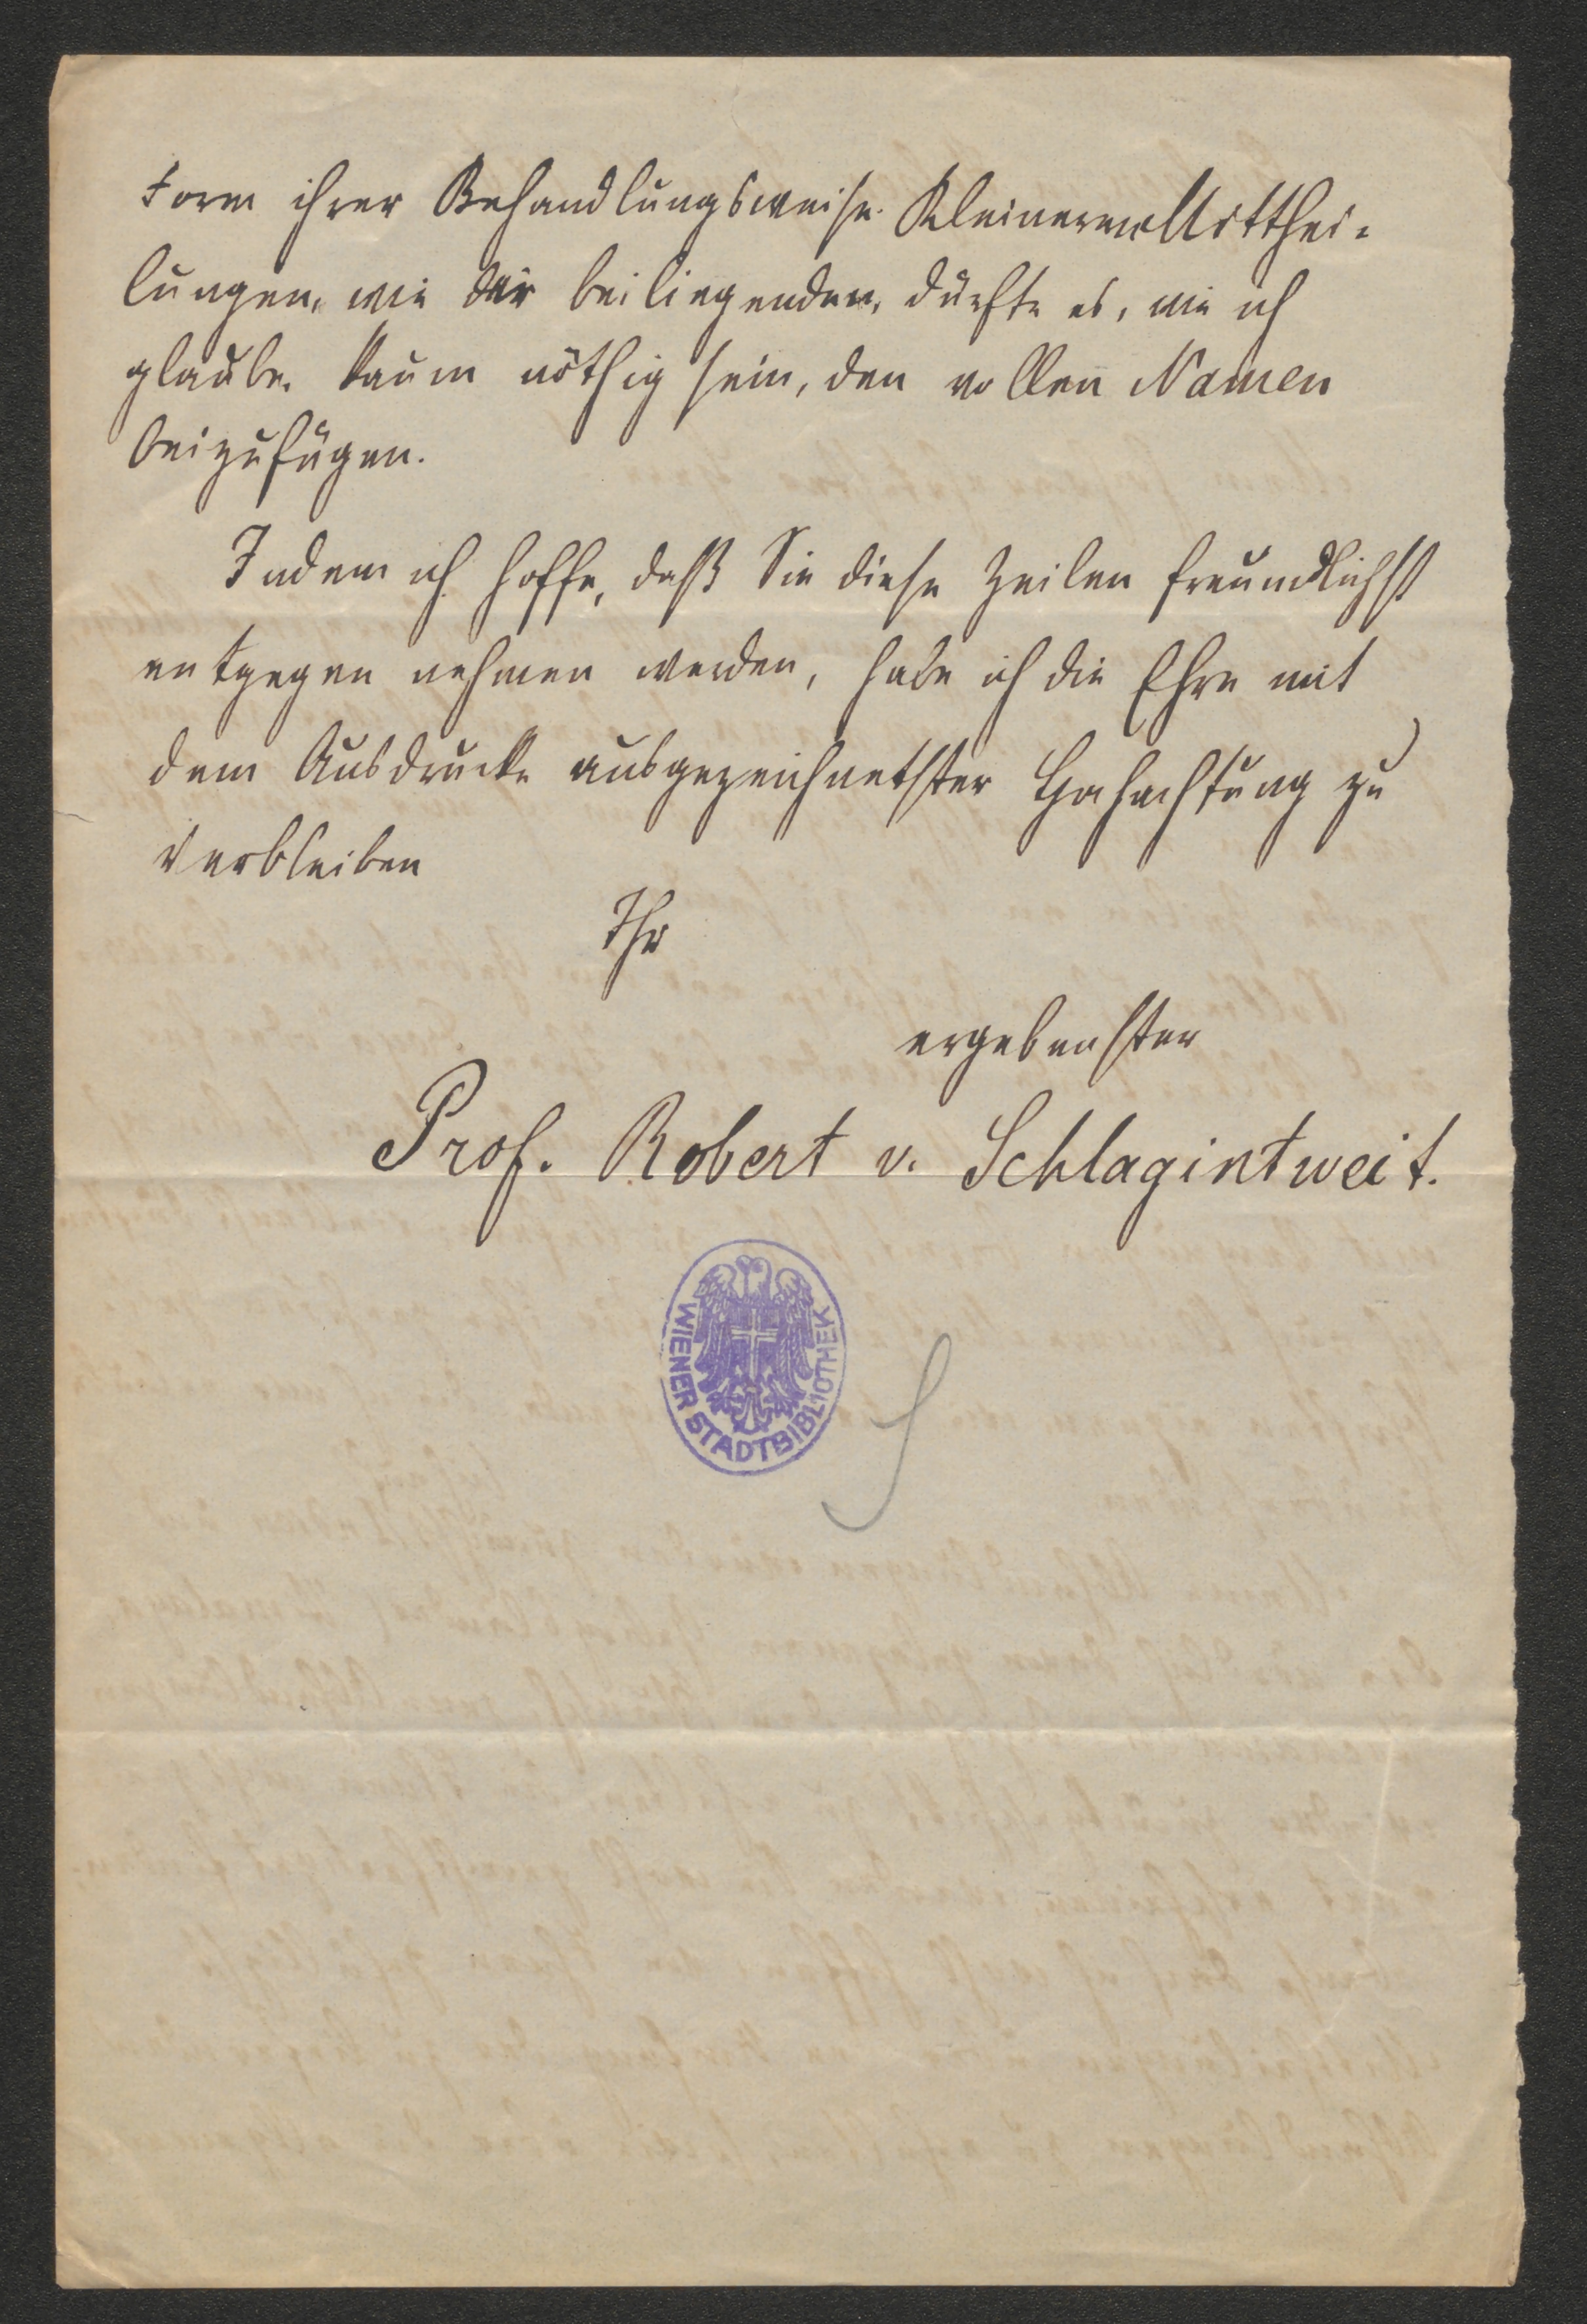 Form ihrer Behandlungsweise. Kleineren Mitthei-
lungen, wie der beiliegenden, dürfte es, wie ich
glaube, kaum nöthig sein, den vollen Namen
beizufügen.
Indem ich hoffe, daß Sie diese Zeilen freundlichst
entgegen nehmen werden, habe ich die Ehre mit
dem Ausdrucke ausgezeichnetster Hochachtung zu
verbleiben
Ihr
ergebenster
Prof. Robert v. Schlagintweit.
WIENER STADTBIBLIOTHEK